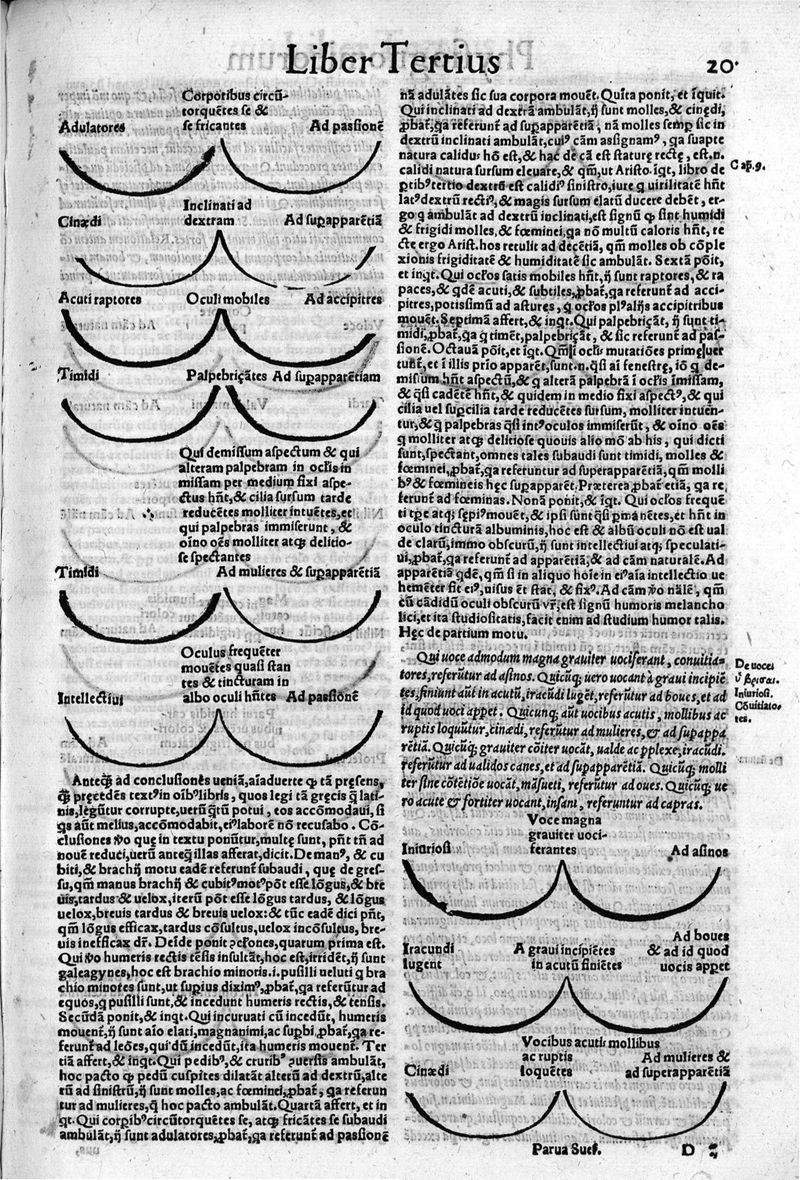 Liber Tertius
20·
Corporibus circū-
torquētes se &
Adulatores se fricantes Ad passionē
Inclinati ad
Cinædi dextram Ad supapparētiā
Acuti raptores Oculi mobiles Ad accipitres
Timidi Palpebricātes Ad supapparētiam
Qui demissum aspectum & qui
alteram palpebram in oculis in
missam per medium fixi aspe-
ctus hñt, & cilia sursum tarde
reducētes molliter intuētes, et
qui palpebras immiserunt, &
oīno oēs molliter atq; delitio-
se spectantes
Timidi Ad mulieres & supapparētiā
Oculus frequēter
mouētes quasi stan
tes & tincturam in
Intellectiui albo oculi hñtes Ad passionē
Anteq̄ ad conclusionēs ueniā, aīaduerte
libris, quos legi tā græcis q̄ lati-
nis, legūtur corrupte, uerū q̄tū potui, eos accōmodaui, si
melius, accōmodabit, laborē nō recusabo. Cō-
clusiones que in textu ponūtur, multę sunt, pñt tñ ad
nouē reduci, uerū anteq̄ illas afferat, dicit. De & cu
biti, & brachij motu eadē referunt subaudi, que de gres-
su, qm̄ manus brachij & esse lōgus, & bre
uis, tardus & uelox, iterū pōt esse lōgus tardus, & lōgus
uelox, breuis tardus & breuis uelox: & tūc eadē dici pñt,
qm̄ lōgus efficax, tardus cōsultus, uelox incōsultus, bre-
uis inefficax dr̄. Deīde ponit quarum prima est.
Qui humeris rectis tēsis insultāt, hoc est, irridēt, ij sunt
galeagynes, hoc est brachio minoris .i. pusilli ueluti q bra
chio minores sunt, ut supius diximꝰ, ꝓbat, qa referūtur ad
equos, q pusilli sunt, & incedunt humeris rectis, & tensis.
Secūdā ponit, & inqt. Qui incuruati cū incedūt, humeris
mouent, ij sunt aīo elati, magnanimi, ac supbi, ꝓbat, qa re-
ferunt ad leōes, qui dū incedūt, ita humeris mouent. Ter
tiā affert, & inqt. Qui pedibꝰ, & cruribꝰ uersis ambulāt,
hoc pacto q pedū cuspites dilatāt alterū ad dextrū, alte
rū ad sinistrū, ij sunt molles, ac fœminei, ꝓbat, qa referun
tur ad mulieres, q hoc pacto ambulāt. Quartā affert, et in
qt. Qui corpibꝰ circūtorquētes se, atq; fricātes se subaudi
ambulāt, ij sunt adulatores, ꝓbat, qa referunt ad passionē
nā adulātes sic sua corpora mouēt. Quīta ponit, et īquit.
Qui inclinati ad dextrā ambulāt, ij sunt molles, & cinędi,
ꝓbat, qa referunt ad supapparētiā, nā molles semp sic in
dextrū inclinati ambulāt, cuiꝰ cām assignamꝰ, qa suapte
natura calidus hō est, & hac de cā est staturę rectę, est .n.
calidi natura sursum eleuare, & qm̄, ut Aristo. īqt, libro de
ptibꝰ tertio dextrū est calidiꝰ sinistro, iure q uirilitatē hñt
latꝰ dextrū rectiꝰ, & magis sursum elatū ducere debēt, er-
go q ambulāt ad dextrū inclinati, est signū q sint humidi
& frigidi molles, & fœminei, qa nō multū caloris hñt, re
cte ergo Arist. hos retulit ad decētiā, qm̄ molles ob cōple
xionis frigiditatē & humiditatē sic ambulāt. Sextā pōit,
et inqt. Qui oculos satis mobiles hñt, ij sunt raptores, & ra
paces, & qdē acuti, & subtiles, ꝓbat, qa referunt ad acci-
pitres, potissimū ad astures, q oculos accipitribus
mouēt. Septimā affert, & inqt. Qui palpebricāt, ij sunt ti-
midi, ꝓbat, qa q timēt, palpebricāt, & sic referunt ad pas-
sionē. Octauā pōit, et īqt. oculis mutatiões
et ī illis prīo apparēt, sunt .n. q̄si aī fenestrę, iō q de-
missum hñt aspectū, & q alterā palpebrā ī oculis īmissam,
& q̄si cadētē hñt, & quidem in medio fixi aspectꝰ, & qui
cilia uel supcilia tarde reducētes sursum, molliter intuen-
tur, & q palpebras q̄si intꝰ oculos immiserūt, & oīno oēs
q molliter atq; delitiose quouis alio mō ab his, qui dicti
sunt, spectant, omnes tales subaudi sunt timidi, molles &
fœminei, ꝓbat, qa referuntur ad superapparētiā, qm̄ molli
bꝰ & fœmineis hęc supapparēt. Pręterea ꝓbat etiā, qa re
ferunt ad fœminas. Nonā ponit, & īqt. Qui oculos frequē
ti mouēt, & ipsi sunt q̄si et hñt in
oculo tincturā albuminis, hoc est & albū oculi nō est ual
de clarū, immo obscurū, ij sunt intellectiui atq; speculati-
ui, ꝓbat, qa referunt ad apparētiā, & ad cām naturalē. Ad
apparētiā qdē, qm̄ si in aliquo hoīe intellectio ue
hemēter fit uisus et stat, & fixꝰ. Ad cām qm̄
cū cādidū oculi obscurū ur̄, est signū humoris melancho
lici, et ita studiositatis, facit enim ad studium humor talis.
Hęc de partium motu.
Qui uoce admodum magna grauiter uociferant, conuitia-
tores, referūtur ad asinos. Quicūq; uero uocant à graui incipiē
tes, finiunt aūt in acutū, iracūdi lugēt, referūtur ad boues, et ad
id quod uoci appet. Quicunq; aūt uocibus acutis, mollibus ac
ruptis loquūtur, cinædi, referūtur ad mulieres, & ad supappa
rētiā. Quicūq; grauiter cōiter uocāt, ualde ac pplexe, iracūdi.
referūtur ad ualidos canes, et ad supapparētiā. Quicūq; molli
ter sine cōtētiōe uocāt, māsueti, referūtur ad oues. Quicūq; ue
ro acute & fortiter uocant, insani, referuntur ad capras.
Cap. 9.
De uocei
Iniuriosi.
Cōuitiato-
res.
Voce magna
grauiter uoci-
Iniuriosi ferantes Ad asinos
Ad boues
Iracundi A graui incipiētes & ad id quod
lugent in acutū finiētes uocis appet
Vocibus acutis mollibus
ac ruptis Ad mulieres &
Cinædi loquētes ad superapparētiā
Parua Sues. D